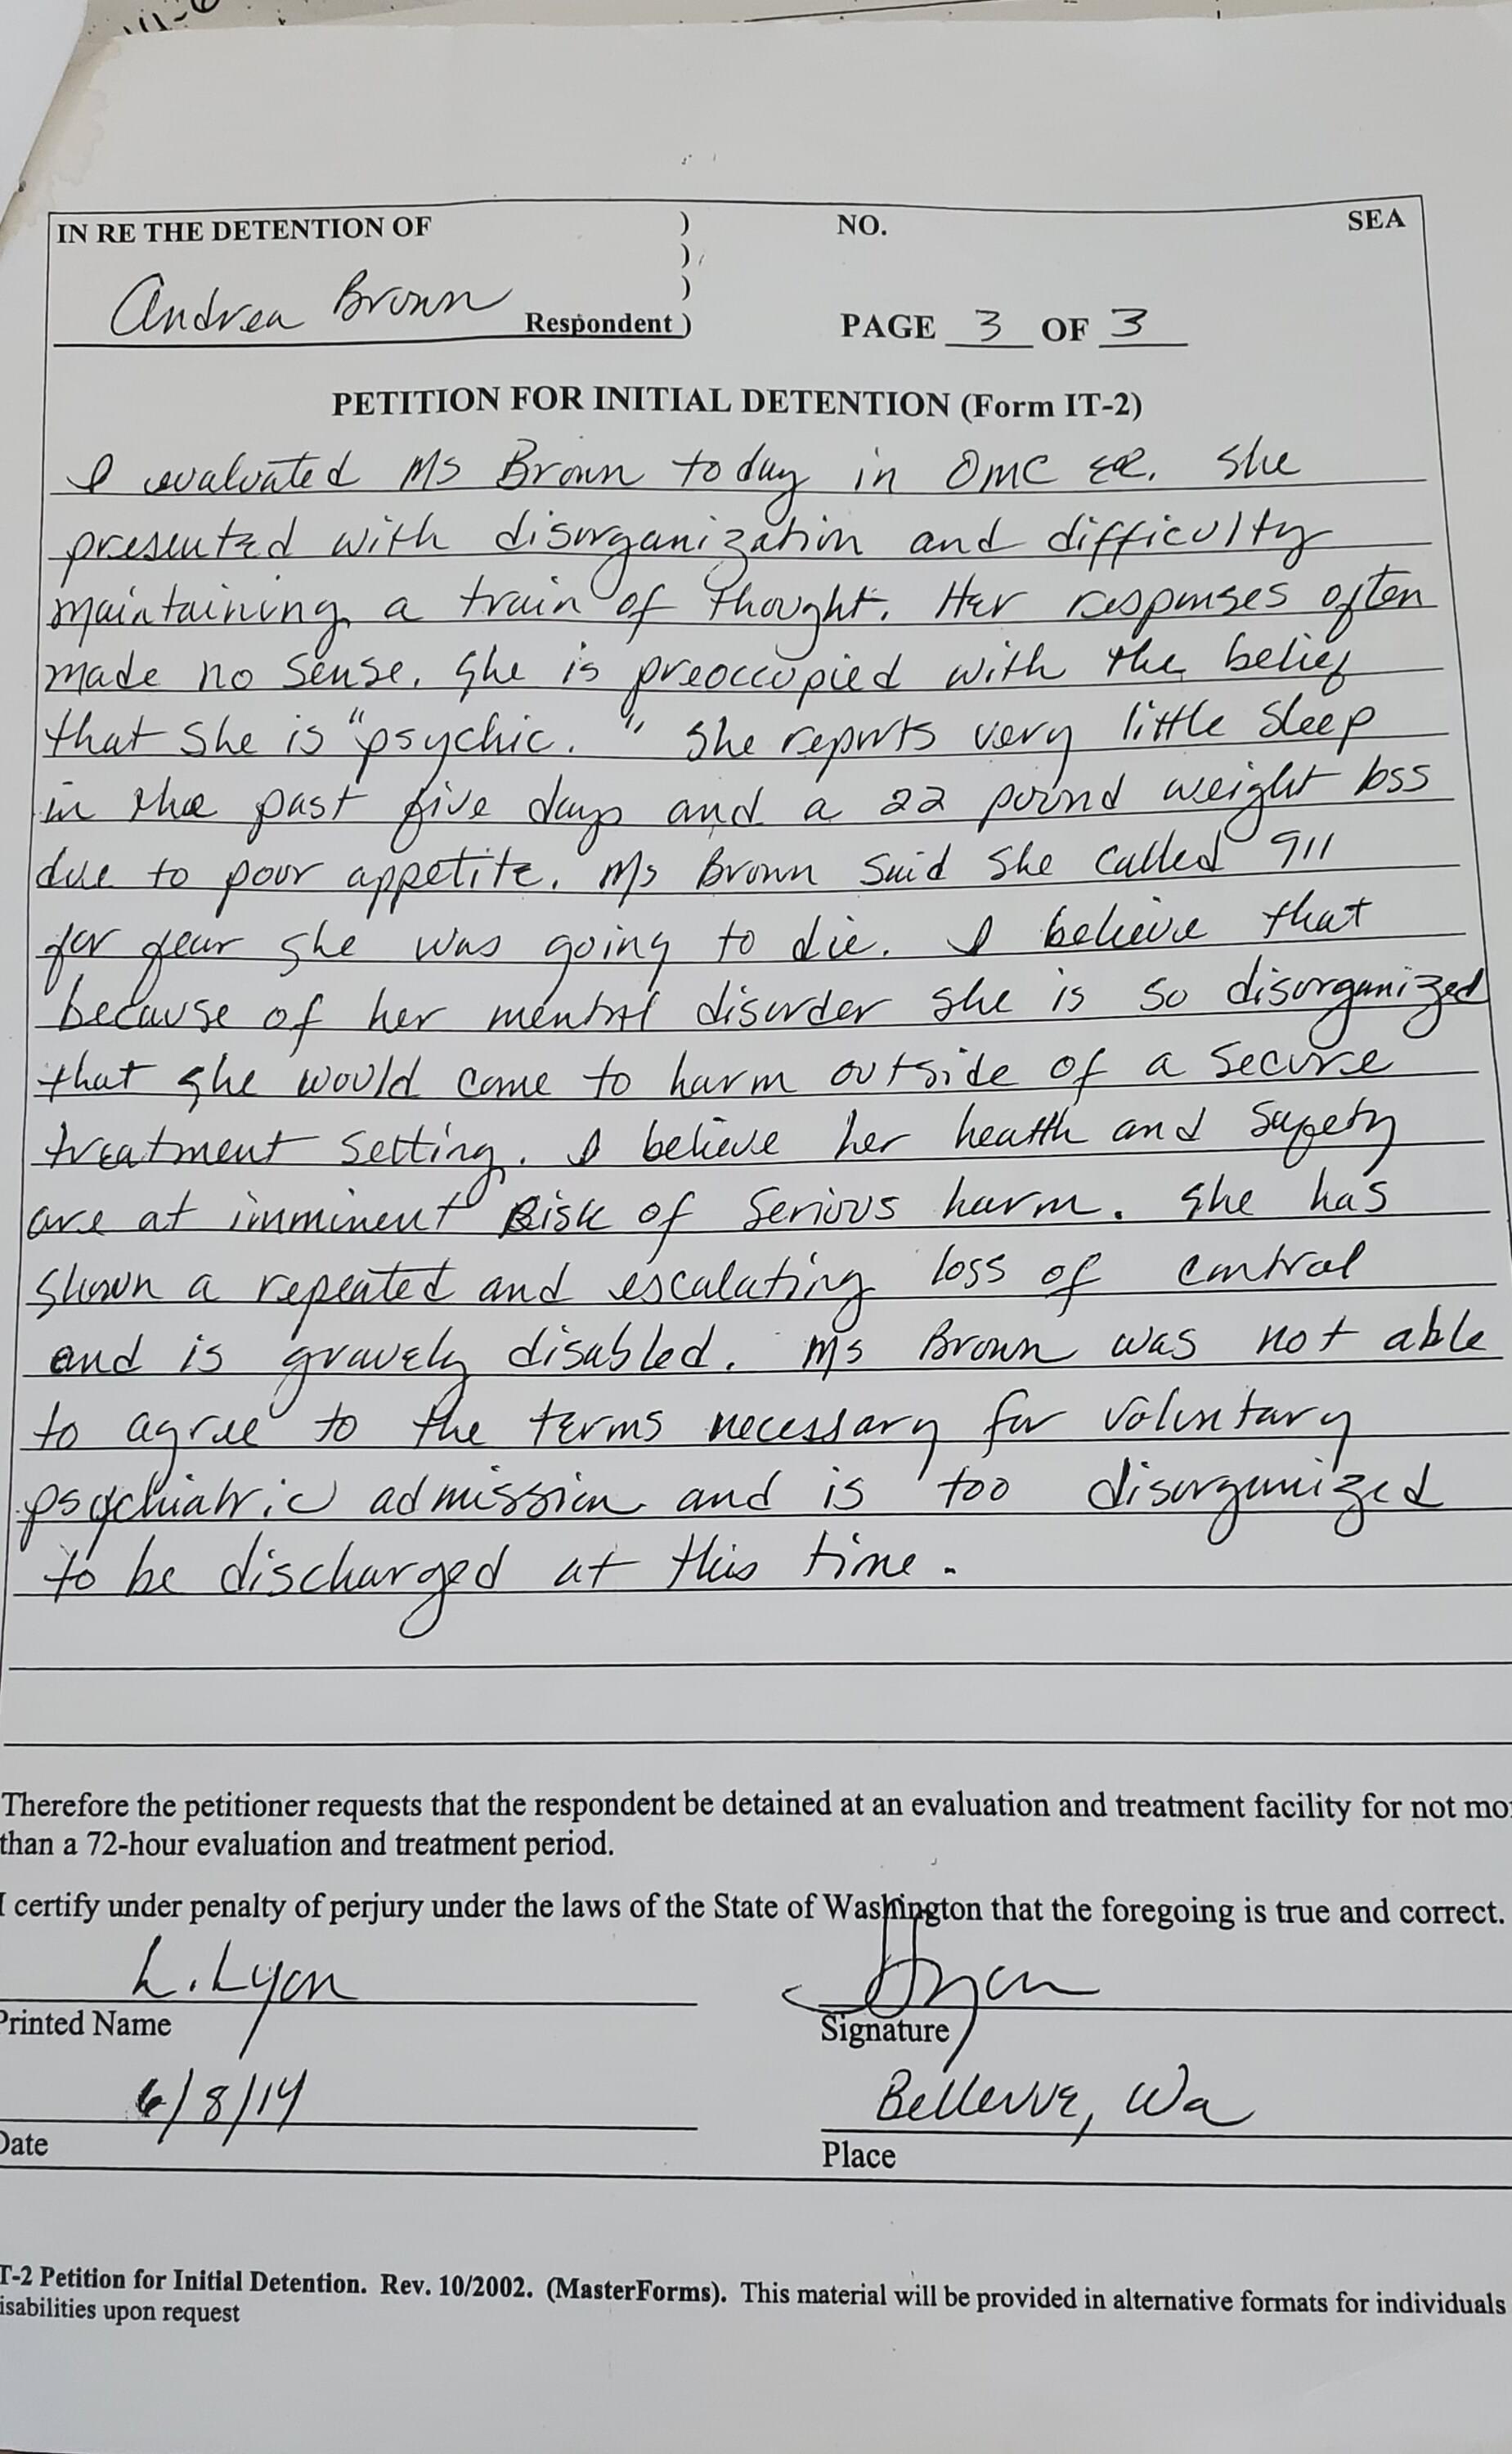 IN RE THE DETENTION OF ) NO. SEA
)
)
Andrea Brown Respondent ) PAGE 3 OF 3
PETITION FOR INITIAL DETENTION (Form IT-2)
I evaluated Ms Brown today in OMC ER. She
presented with disorganization and difficulty
maintaining a train of thought. Her responses often
made no sense. She is preoccupied with the belief
that she is "psychic." She reports very little sleep
in the past five days and a 22 pound weight loss
due to poor appetite. Ms Brown said she called 911
for fear she was going to die. I believe that
because of her mental disorder she is so disorganized
that she would come to harm outside of a secure
treatment setting. I believe her health and safety
are at imminent Risk of serious harm. She has
shown a repeated and escalating loss of control
and is gravely disabled. Ms Brown was not able
to agree to the terms necessary for voluntary
psychiatric admission and is too disorganized
to be discharged at this time.
Therefore the petitioner requests that the respondent be detained at an evaluation and treatment facility for not mo
than a 72-hour evaluation and treatment period.
I certify under penalty of perjury under the laws of the State of Washington that the foregoing is true and correct.
L. Lyon
Printed Name Signature
6/8/14 Bellevue, Wa
Date Place
T-2 Petition for Initial Detention. Rev. 10/2002. (MasterForms). This material will be provided in alternative formats for individuals
isabilities upon request